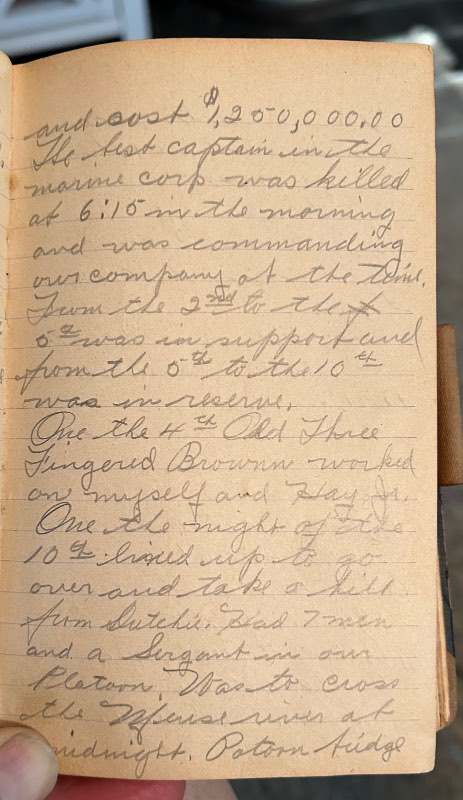 and cost $1,250,000.00
The best captain in the
marine corp was killed
at 6:15 in the morning
and was commanding
our company at the time.
From the 2nd to the
5th was in support and
from the 5th to the 10th
was in reserve.
One the 4th Old Three
Fingered Brownn worked
on myself and Hay Jr.
One the night of the
10th lined up to go
over and take a hill
from Dutchie. Had 7 men
and a Sergant in our
Platoon. Was to cross
the Meuse river at
midnight. Potoon bridge